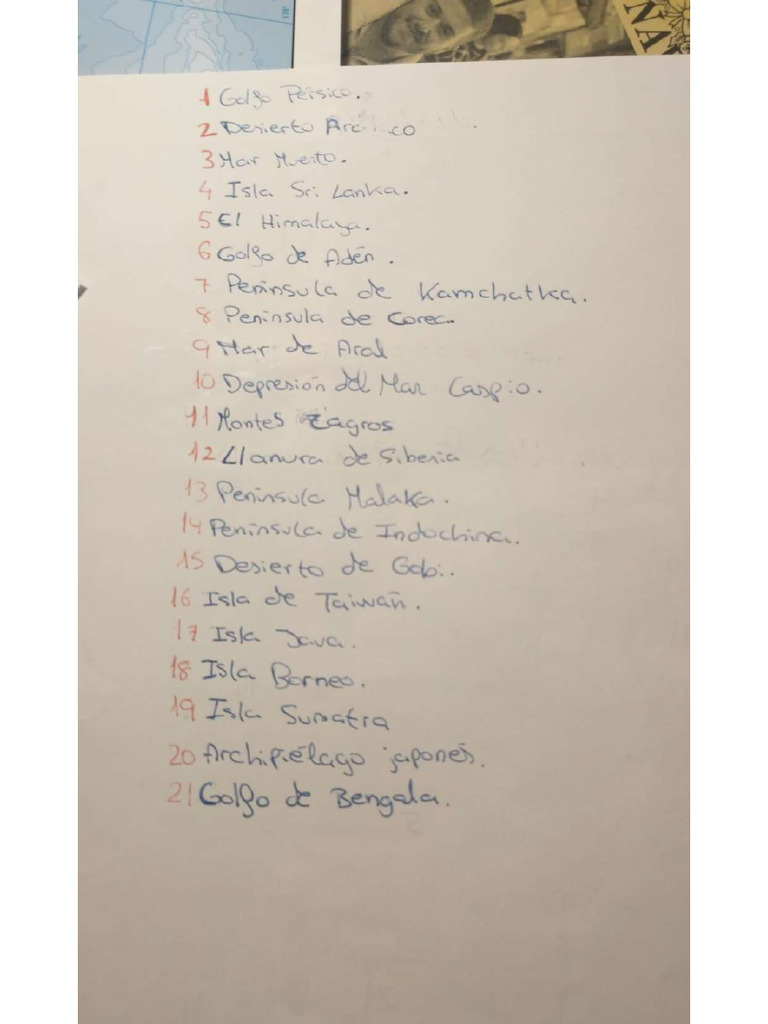 NA
1 Golfo Pérsico.
2 Desierto
3 Mar Muerto.
4 Isla Sri Lanka.
5 El Himalaya.
6 Golfo de Adén.
7 Península de Kamchatka.
8 Península de Corea.
9 Mar de Aral
10 Depresión del Mar Caspio.
11 Montes Zagros
12 Llanura de Siberia
13 Península Malaka.
14 Península de Indochina.
15 Desierto de Gobi.
16 Isla de Taiwan.
17 Isla Java.
18 Isla Borneo.
19 Isla Sumatra
20 Archipiélago japonés.
21 Golfo de Bengala.